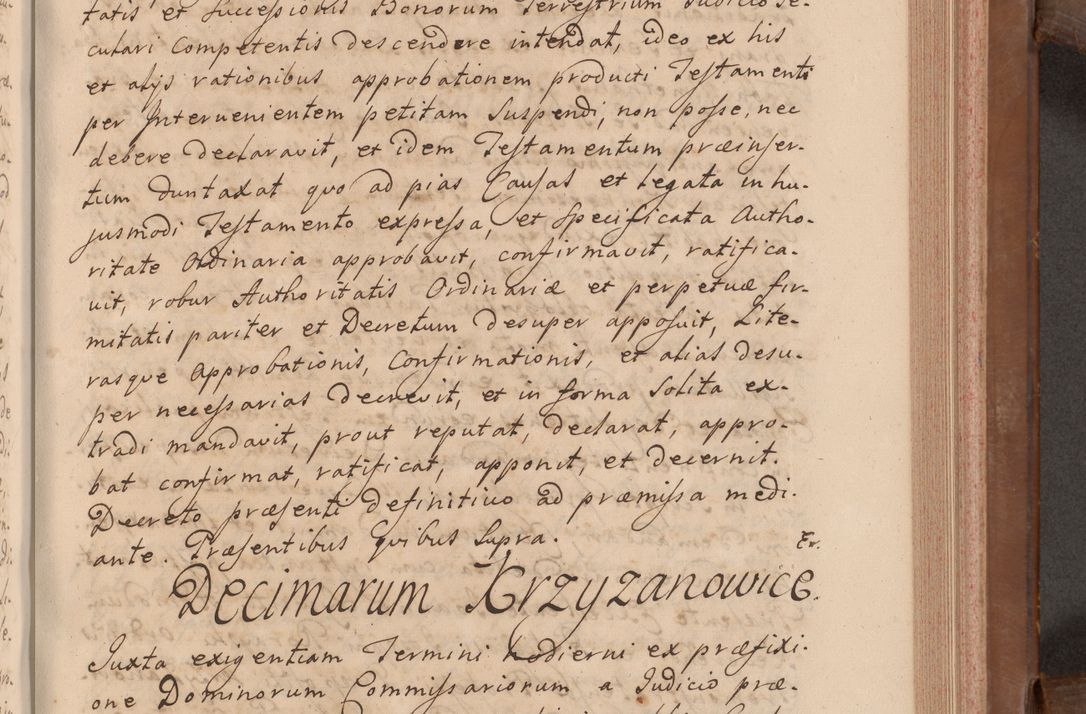 tatis et Successionis Bonorum Terrestrium Iudicio Se-
culari Competentis descendere intendat, ideo ex his
et alijs rationibus approbationem producti Testamenti
per Interuenientem petitam Suspendi, non posse, nec
debere declaravit, et idem Testamentum præinser-
tum duntaxat quo ad pias Causas et legata in hu-
jusmodi Testamento expressa, et specificata Autho-
ritate Ordinaria approbavit, confirmavit, ratifica-
uit, robur Authoritatis Ordinariæ et perpetuæ fir-
mitatis pariter et Decretum desuper apposuit, Lite-
rasque Approbationis, Confirmationis, et alias desu-
per necessarias decrevit, et in forma solita ex-
tradi mandavit, prout reputat, declarat, appro-
bat confirmat, ratificat, apponit, et decernit.
Decreto præsenti definitiuo ad præmissa medi-
ante. Præsentibus quibus Supra.
Er.
Decimarum Krzyzanowice.
Iuxta exigentiam Termini hodierni ex præfixi-
one Dominorum Commissariorum a Iudicio præ-